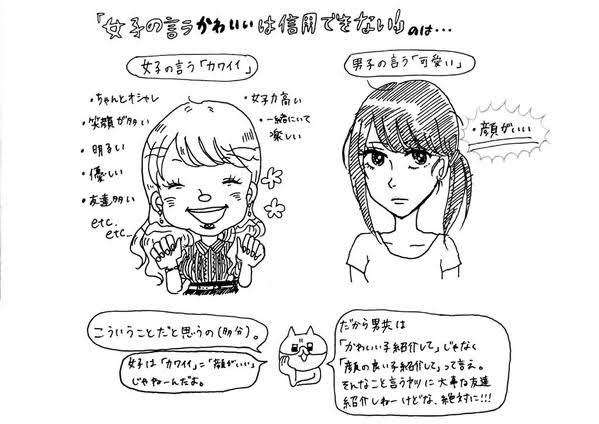 「女子の言うかわいいは信用できない!」のは…
女子の言う「カワイイ」
・ちゃんとオシャレ
・笑顔が多い
・明るい
・優しい
・友達多い
etc.
etc…
・女子力高い
・一緒にいて
楽しい
男子の言う「可愛い」
・顔がいい
こういうことだと思うの(多分)。
女子は「カワイイ」=「顔がいい」
じゃねーんだよ。
だから男共は
「かわいい子紹介して」じゃなく
「顔の良い子紹介して」って言え。
そんなこと言うヤツに大事な友達
紹介しねーけどな、絶対に!!!